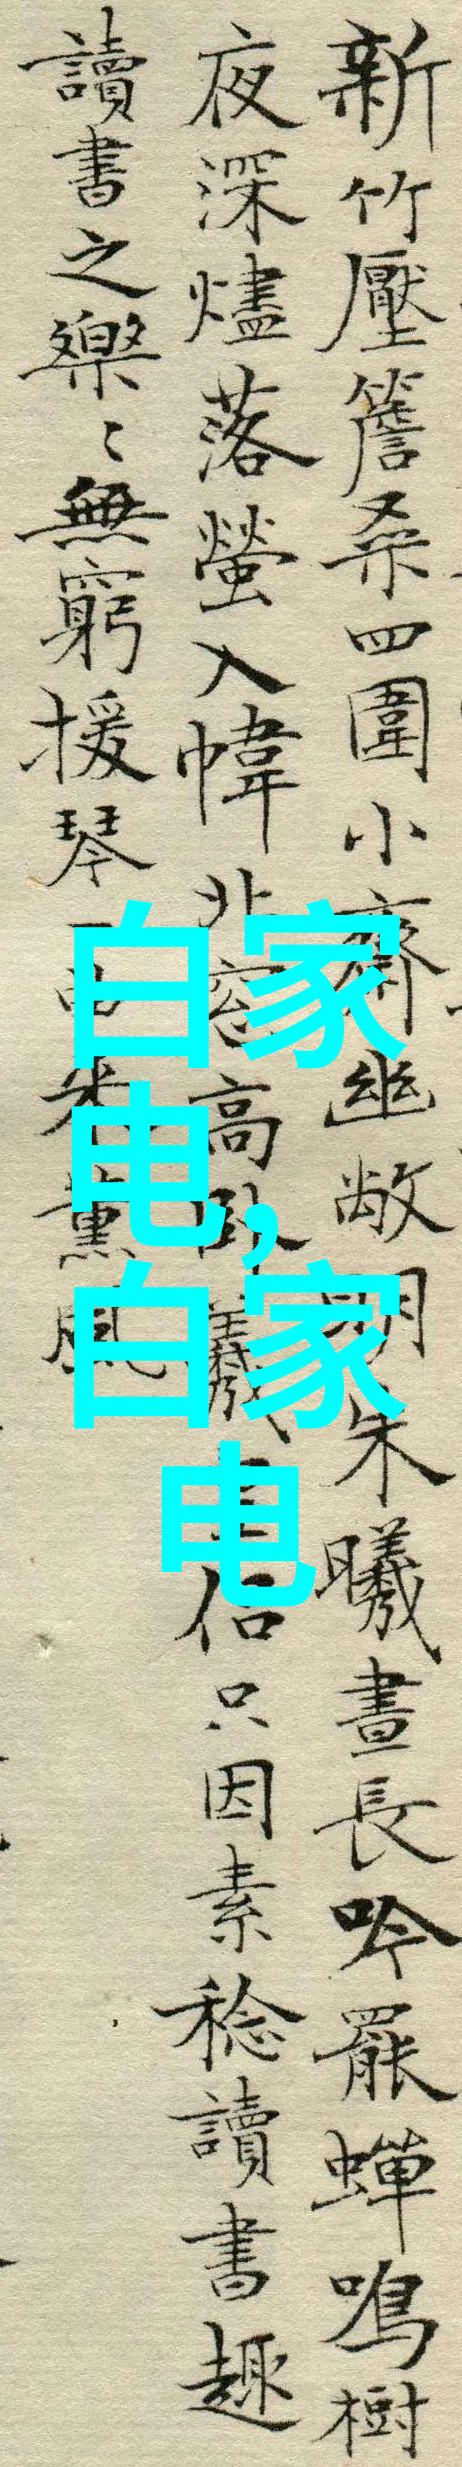 新竹壓簷桑四圍小齋幽敞明朱曦晝長吟罷蟬鳴樹
夜深燼落螢入幃北窗高臥羲皇侣只因素稔讀書趣
讀書之樂〻無窮援琴一曲来薰風
白家
电,
白家
电